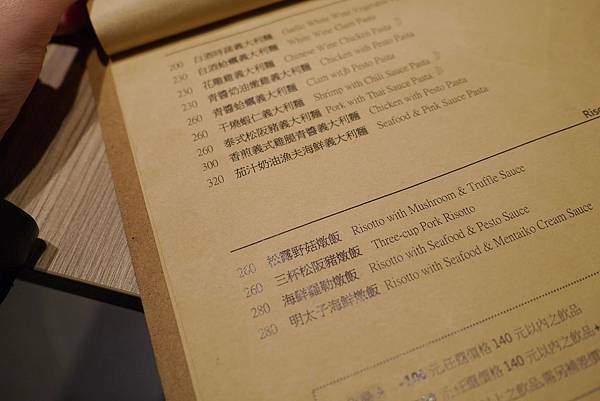 200 白酒時蔬義大利麵 Garlic White Wine Vegetables
230 白酒蛤蠣義大利麵 White Wine Clam Pasta
230 花雕雞義大利麵 Chinese Wine Chicken Pasta
230 青醬奶油嫩雞義大利麵 Chicken with Pesto Pasta
260 青醬蛤蠣義大利麵 Clam with Pesto Pasta
260 干燒蝦仁義大利麵 Shrimp with Chili Sauce Pasta
260 泰式松阪豬義大利麵 Pork with Thai Sauce Pasta
300 香煎義式雞腿青醬義大利麵 Chicken with Pesto Pasta
320 茄汁奶油漁夫海鮮義大利麵 Seafood & Pink Sauce Pasta
Riso
260 松露野菇燉飯 Risotto with Mushroom & Truffle Sauce
260 三杯松阪豬燉飯 Three-cup Pork Risotto
280 海鮮羅勒燉飯 Risotto with Seafood & Pesto Sauce
280 明太子海鮮燉飯 Risotto with Seafood & Mentaiko Cream Sauce
100 元,任選價格 140 元以內之飲品
元,任選價格 140 元以內之飲品+
以上之飲品,需另補差價